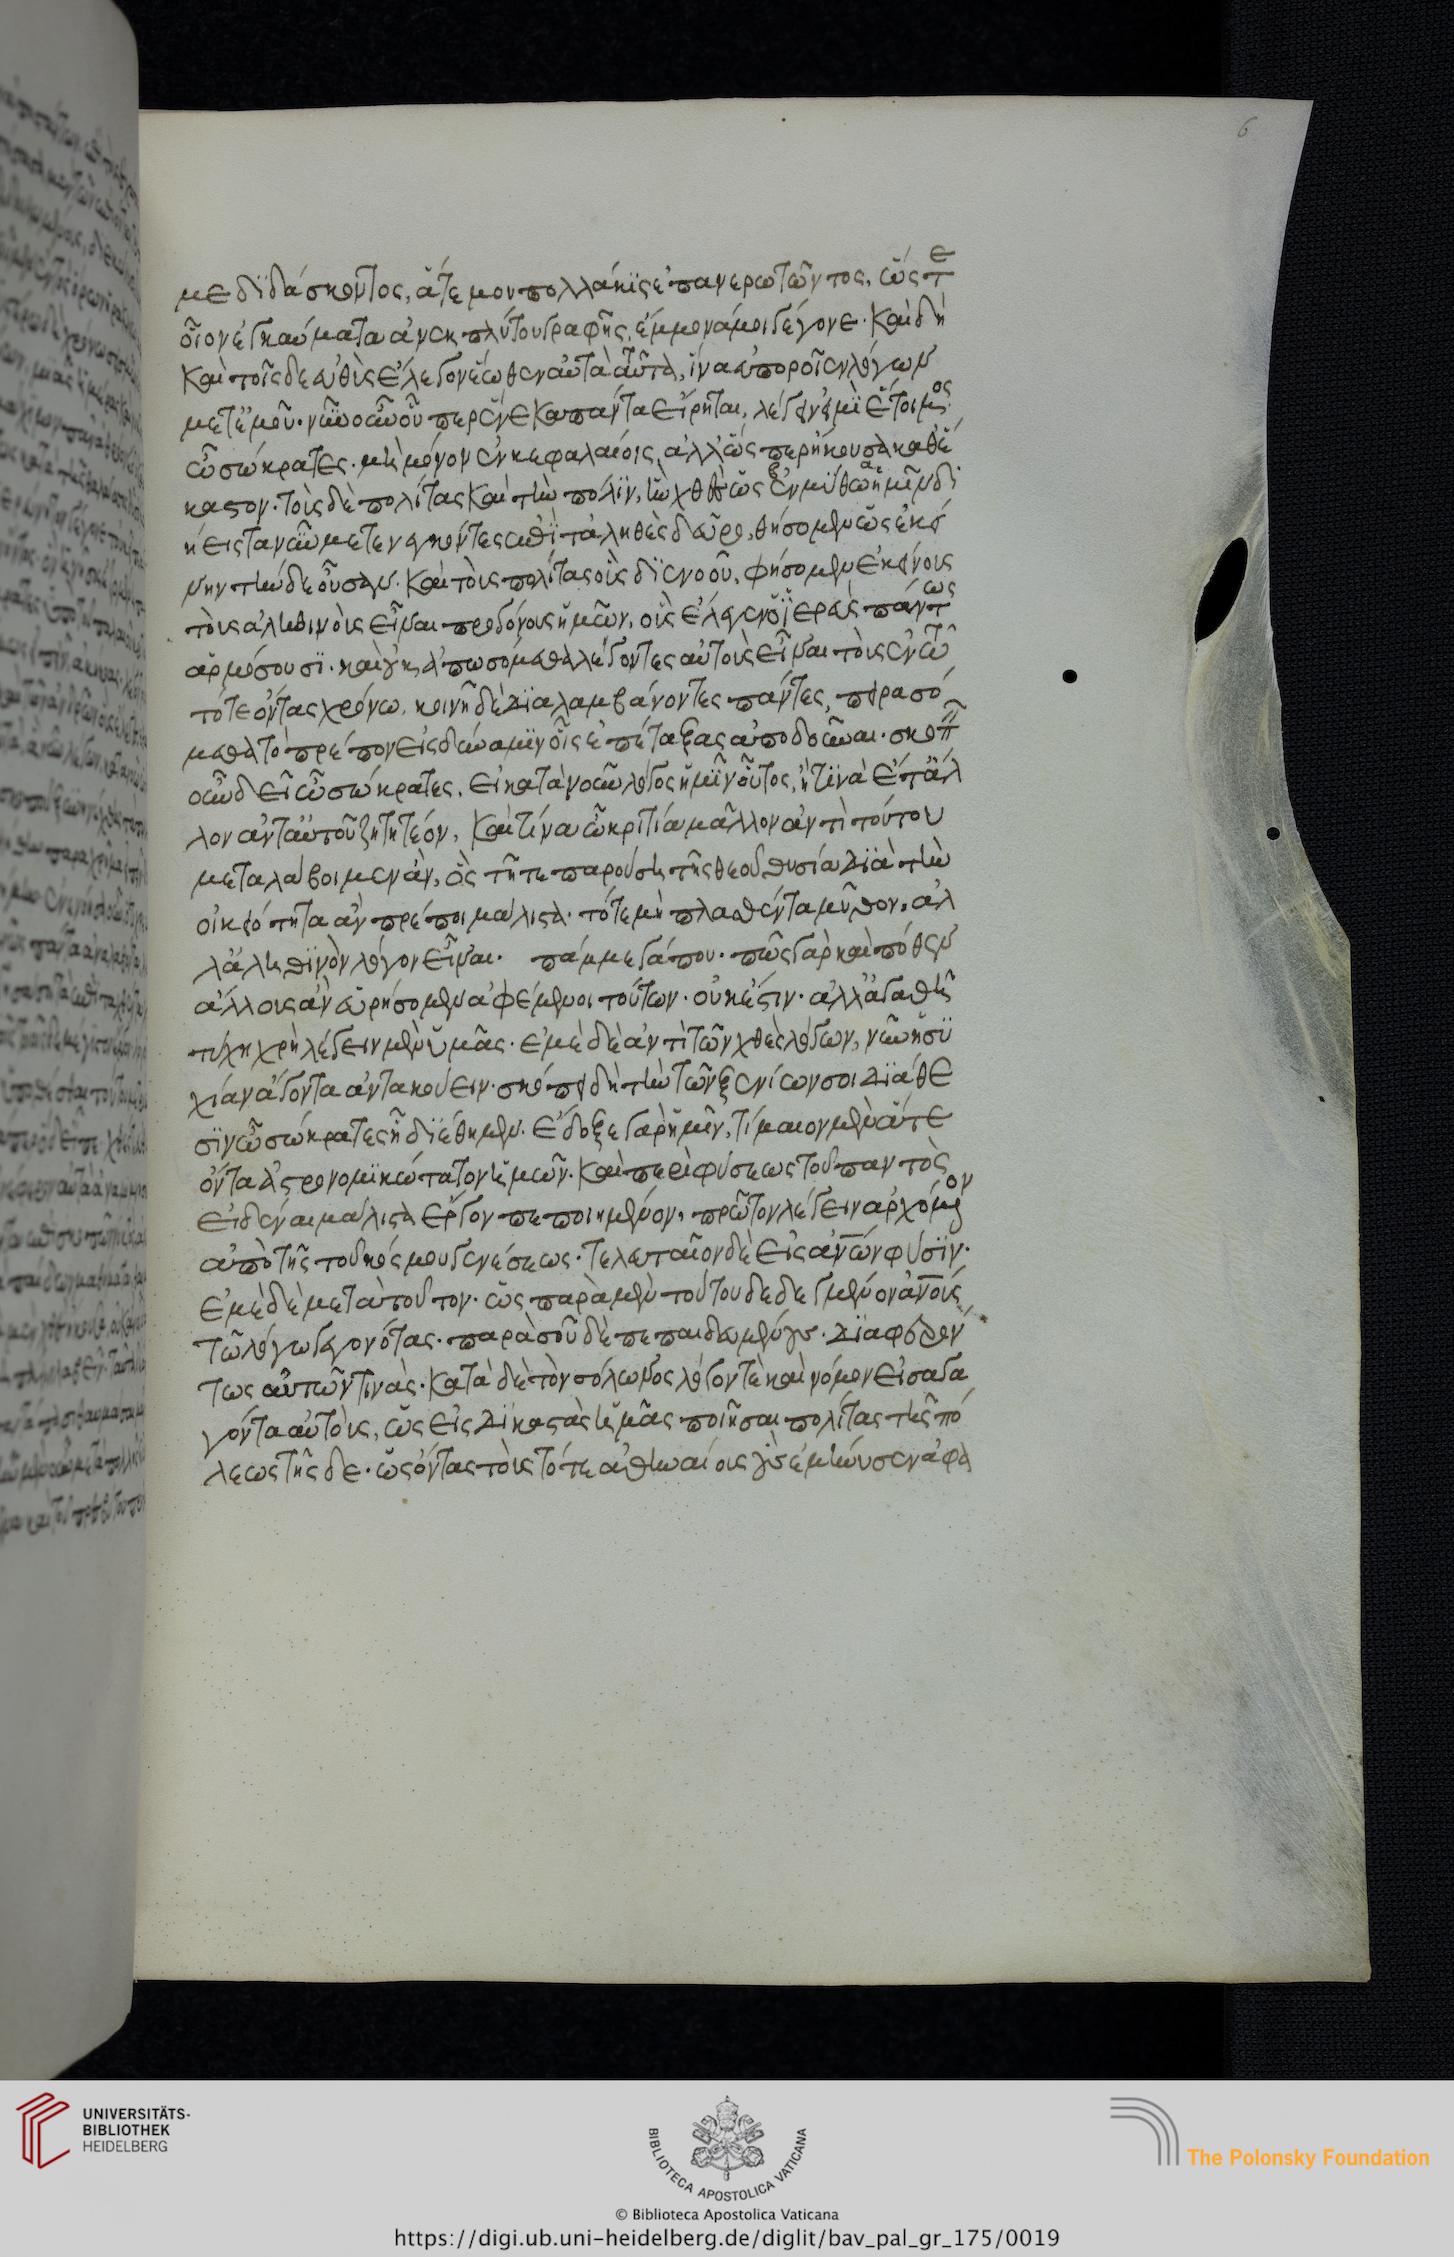 με διδάσκοντος, ἅτε μου πολλάκις ἐπανερωτῶντος, ὥστε
οἷον ἐγκαύματα ἀνεκπλύτου γραφῆς, ἔμμονά μοι γέγονε. καὶ δὴ
καὶ τοῖσδε εὐθὺς ἔλεγον ἕωθεν αὐτὰ ταῦτα, ἵνα εὐποροῖεν λόγων
μετ' ἐμοῦ. νῦν οὖν οὗπερ ἕνεκα πάντα εἴρηται, λέγειν εἰμὶ ἕτοιμος
ὦ σώκρατες. μὴ μόνον ἐν κεφαλαίοις, ἀλλ' ὥσπερ ἤκουσα καθ' ἕ
καστον. τοὺς δὲ πολίτας καὶ τὴν πόλιν, ἣν χθὲς ὡς ἐν μύθω ἡμῖν δι
ήεις τανῦν μετενεγκόντες ἐπὶ τἀληθὲς δεῦρο, θήσομεν ὡς ἐκεί
νην τήνδε οὖσαν. καὶ τοὺς πολίτας οὓς διενοοῦ, φήσομεν ἐκείνους
τοὺς ἀληθινοὺς εἶναι προγόνους ἡμῶν, οὓς ἔλεγεν ὁ ἱερεὺς πάντως
ἁρμόσουσι. καὶ οὐκ ἀπωσόμεθα λέγοντες αὐτοὺς εἶναι τοὺς ἐν τῶ
τότε ὄντας χρόνω. κοινῇ δὲ διαλαμβάνοντες πάντες, πειρασό
μεθα τὸ πρέπον εἰς δύναμιν οἷς ἐπέταξας ἀποδοῦναι. σκοπεῖν
οὖν δεῖ ὦ σώκρατες, εἰ κατὰ νοῦν λόγος ἡμῖν οὗτος, ἤ τινα ἔτ' ἄλ
λον ἀντ' αὐτοῦ ζητητέον, καὶ τίνα ὦ κριτία μᾶλλον ἀντὶ τούτου
μεταλάβοιμεν ἄν, ὃς τῆ τε παρούση τῆς θεοῦ θυσία διὰ τὴν
οἰκειότητα ἂν πρέποι μάλιστα. τό τε μὴ πλασθέντα μῦθον, ἀλ
λ' ἀληθινὸν λόγον εἶναι. πάμμεγά που. πῶς γὰρ καὶ πόθεν
ἄλλους ἀνευρήσομεν ἀφέμενοι τούτων. οὐκ ἔστιν. ἀλλ' ἀγαθῆ
τύχη χρὴ λέγειν μὲν ὑμᾶς. ἐμὲ δὲ ἀντὶ τῶν χθὲς λόγων, νῦν ἡσυ
χίαν ἄγοντα ἀντακούειν. σκόπει δὴ τὴν τῶν ξενίων σοι διάθε
σιν ὦ σώκρατες ἧ διέθημεν. ἔδοξε γὰρ ἡμῖν, τίμαιον μὲν ἅτε
ὄντα ἀστρονομικώτατον ἡμῶν. καὶ περὶ φύσεως τοῦ παντὸς
εἰδέναι μάλιστα ἔργον πεποιημένον, πρῶτον λέγειν ἀρχόμενον
ἀπὸ τῆς τοῦ κόσμου γενέσεως. τελευταῖον δὲ εἰς ἀν̅ων φύσιν.
ἐμὲ δὲ μετὰ τοῦτον. ὡς παρὰ μὲν τούτου δεδεγμένον ἀν̅ους
τῶ λόγω γεγονότας. παρὰ σοῦ δὲ πεπαιδευμένους διαφερόν
τως αὐτῶν τινάς. κατὰ δὲ τὸν σόλωνος λόγον τὲ καὶ νόμον εἰσαγα
γόντα αὐτοὺς, ὡς εἰς δικαστὰς ἡμᾶς ποιῆσαι πολίτας τῆς πό
λεως τῆσδε. ὡς ὄντας τοὺς τότε ἀθηναίους οὓς ἐμήνυσεν ἀφα
6
UNIVERSITÄTS-
BIBLIOTHEK
HEIDELBERG
BIBLIOTECA APOSTOLICA VATICANA
The Polonsky Foundation
© Biblioteca Apostolica Vaticana
https://digi.ub.uni-heidelberg.de/diglit/bav_pal_gr_175/0019